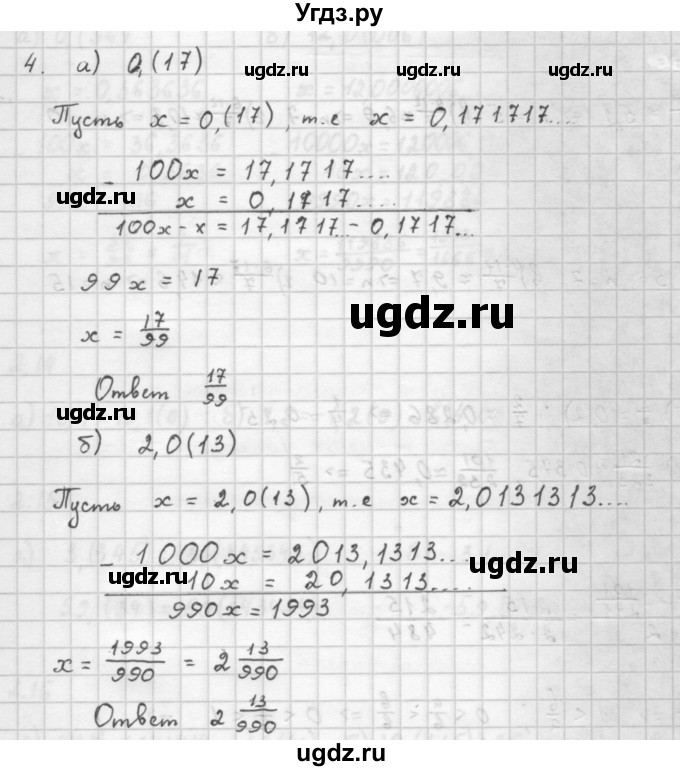 Угдз.ру
4. а) 0,(17)
ugdz.ru ugdz.ru
Пусть x = 0,(17), т.е x = 0,171717...
100x = 17,1717....
ugdz.ru
- x = 0,1717....
100x - x = 17,1717... - 0,1717...
99x = 17
ugdz.ru
x = 17/99
Ответ 17/99
б) 2,0(13)
ugdz.ru
Пусть x = 2,0(13), т.е x = 2,0131313....
- 1000x = 2013,1313....
ugdz.ru ugdz.ru
10x = 20,1313......
990x = 1993
x = 1993/990 = 2 13/990
Ответ 2 13/990
ugdz.ru ugdz.ru
ugdz.ru